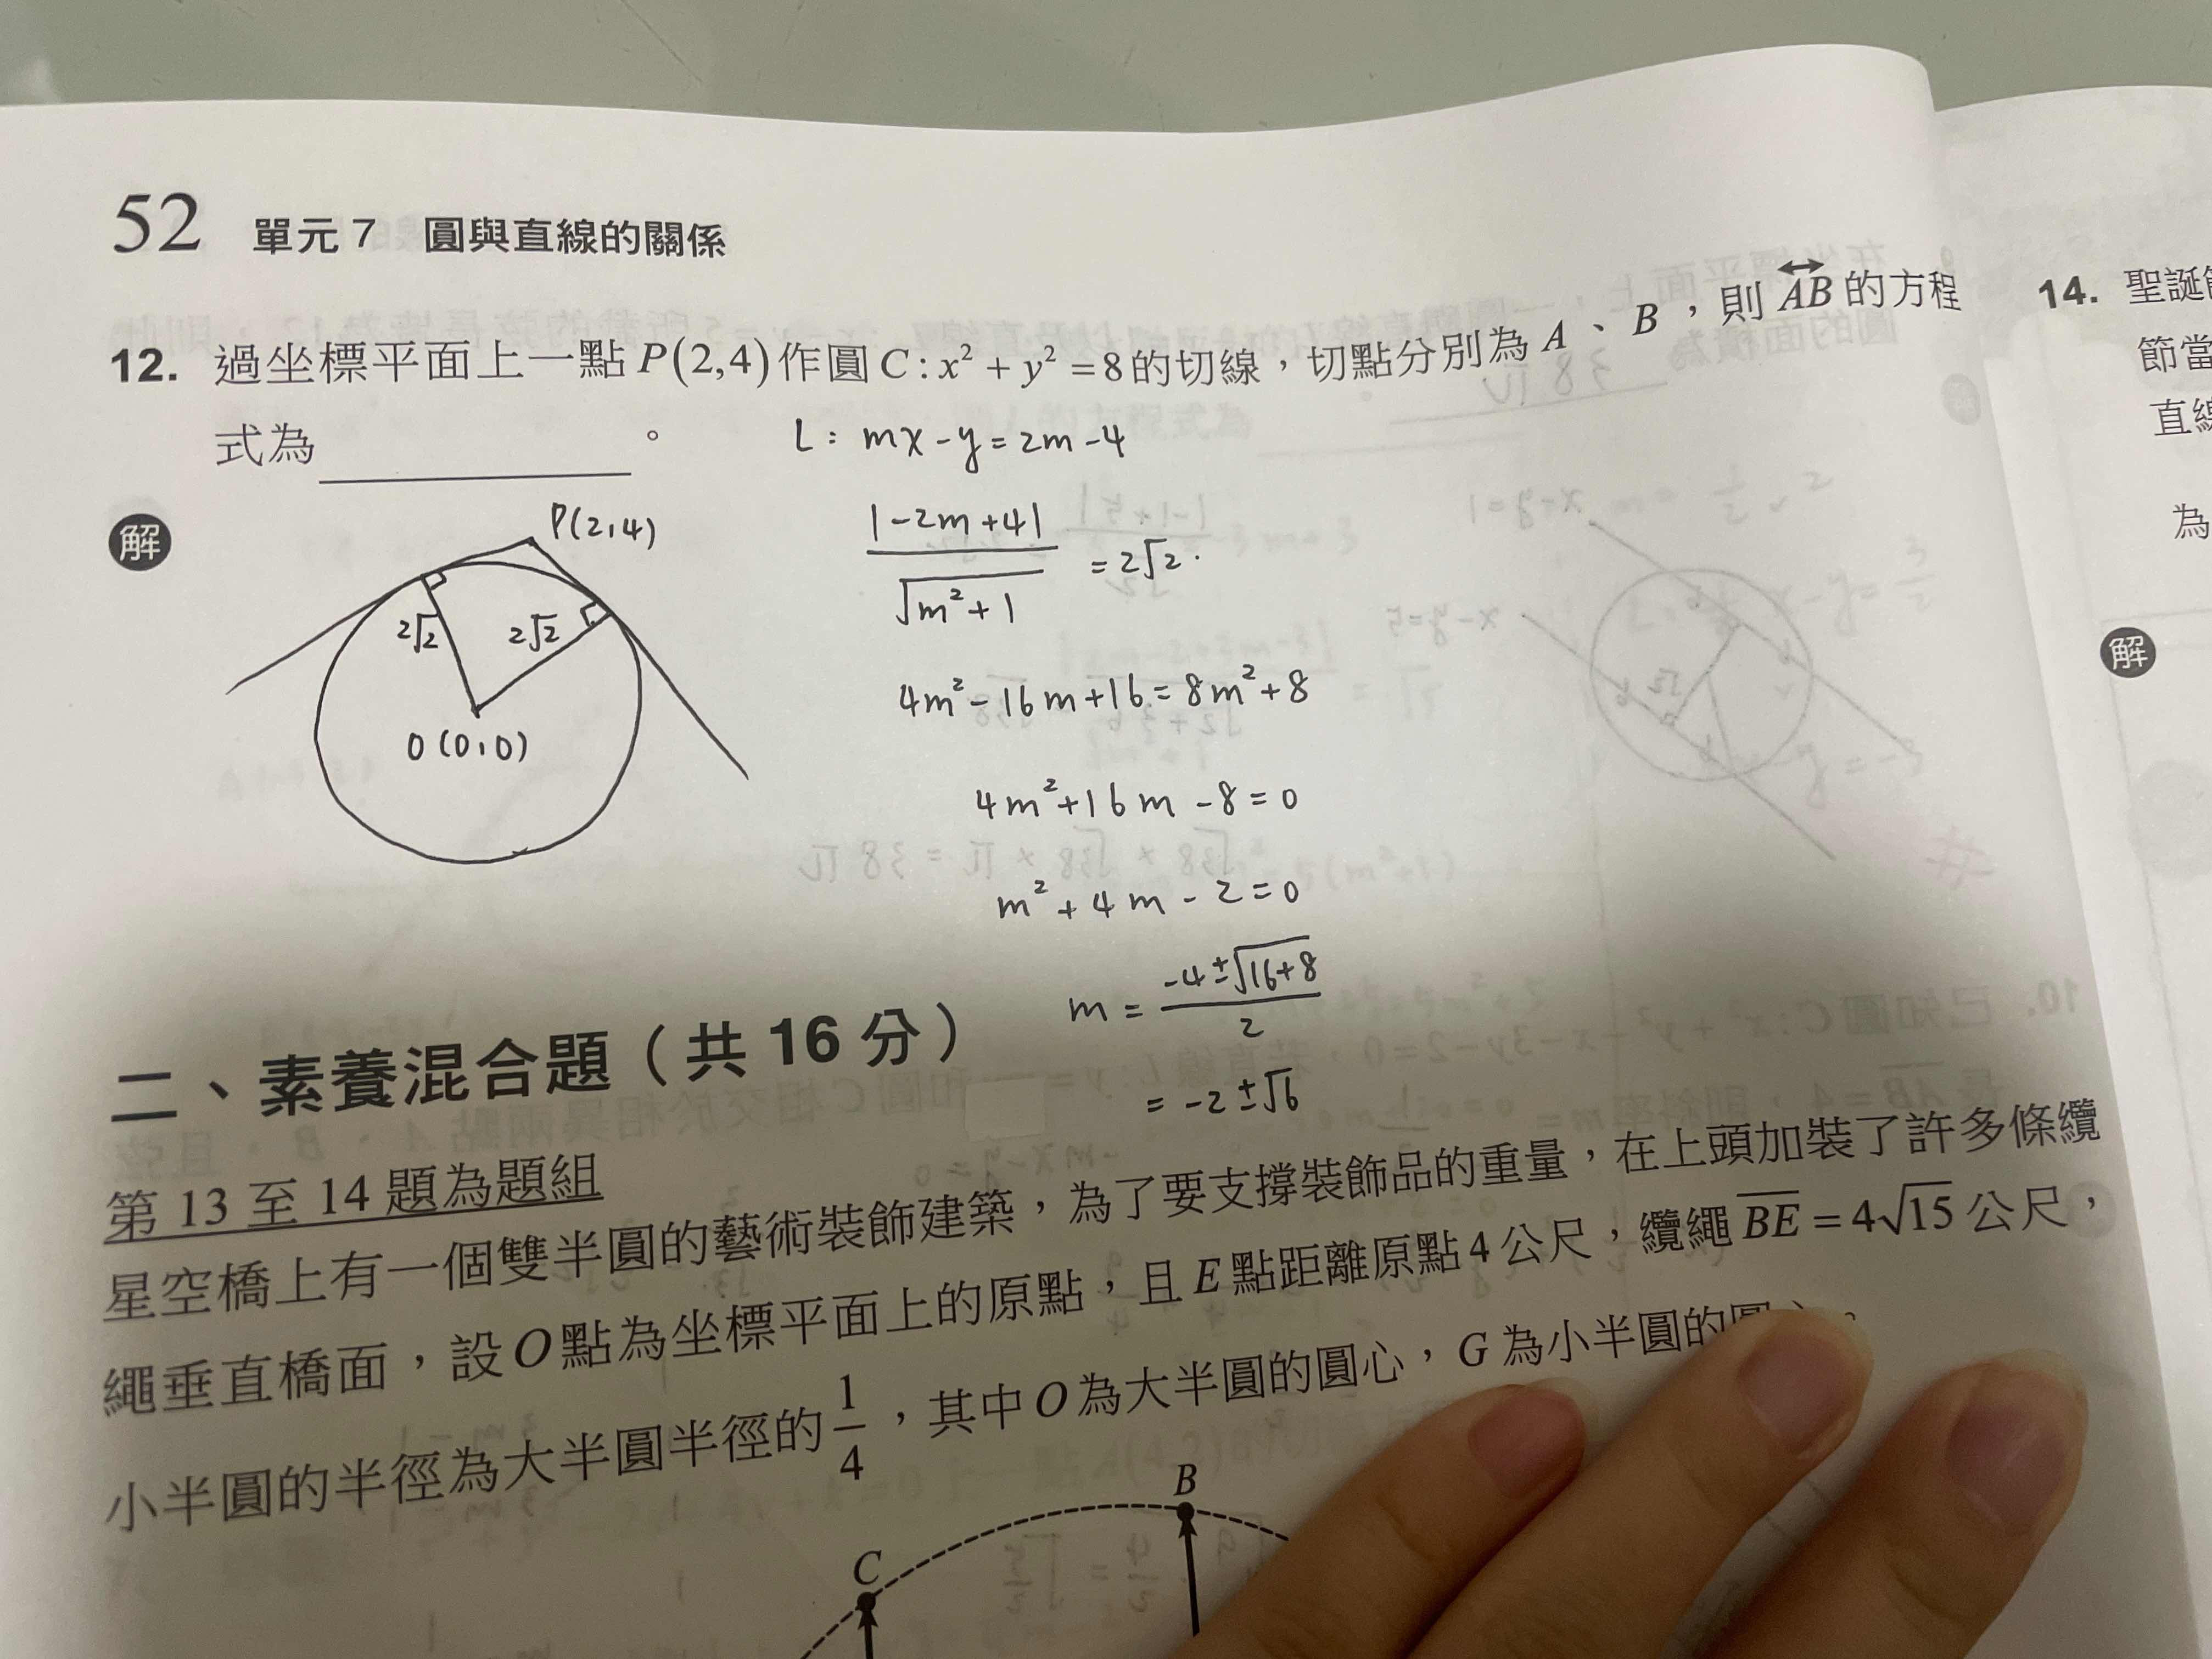 52 單元 7 圓與直線的關係
12. 過坐標平面上一點 P(2,4) 作圓 C : x² + y² = 8 的切線，切點分別為 A、B，則 AB 的方程
式為________。
L : mx - y = 2m - 4
解
P(2,4)
2√2
2√2
O(0,0)
|-2m+4| / √(m²+1) = 2√2
4m² - 16m + 16 = 8m² + 8
4m² + 16m - 8 = 0
m² + 4m - 2 = 0
m = (-4 ± √(16+8)) / 2
= -2 ± √6
二、素養混合題（共 16 分）
第 13 至 14 題為題組
星空橋上有一個雙半圓的藝術裝飾建築，為了要支撐裝飾品的重量，在上頭加裝了許多條纜
繩垂直橋面，設 O 點為坐標平面上的原點，且 E 點距離原點 4 公尺，纜繩 BE = 4√15 公尺，
小半圓的半徑為大半圓半徑的 1/4，其中 O 為大半圓的圓心，G 為小半圓的
B
C
14. 聖誕
節當
直線
為
解